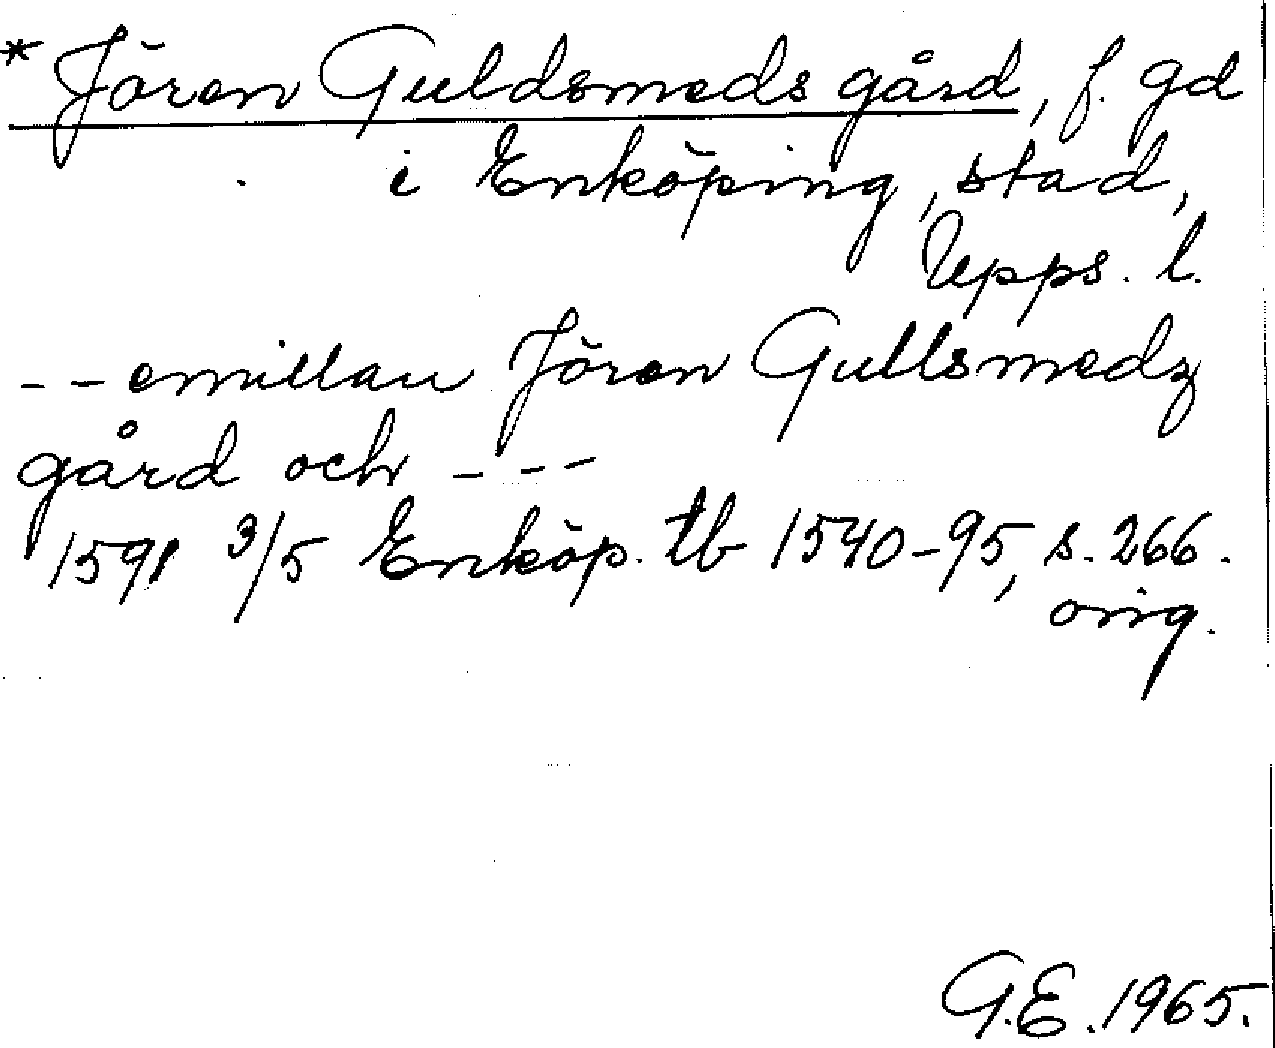 * Jören Guldsmeds gård, f. gd
i Enköping, stad,
Upps. l.
- - emillan Jören Gullsmedz
gård och - - -
1591 3/5 Enköp. tb 1540-95, s. 266.
orig.
G.E. 1965.